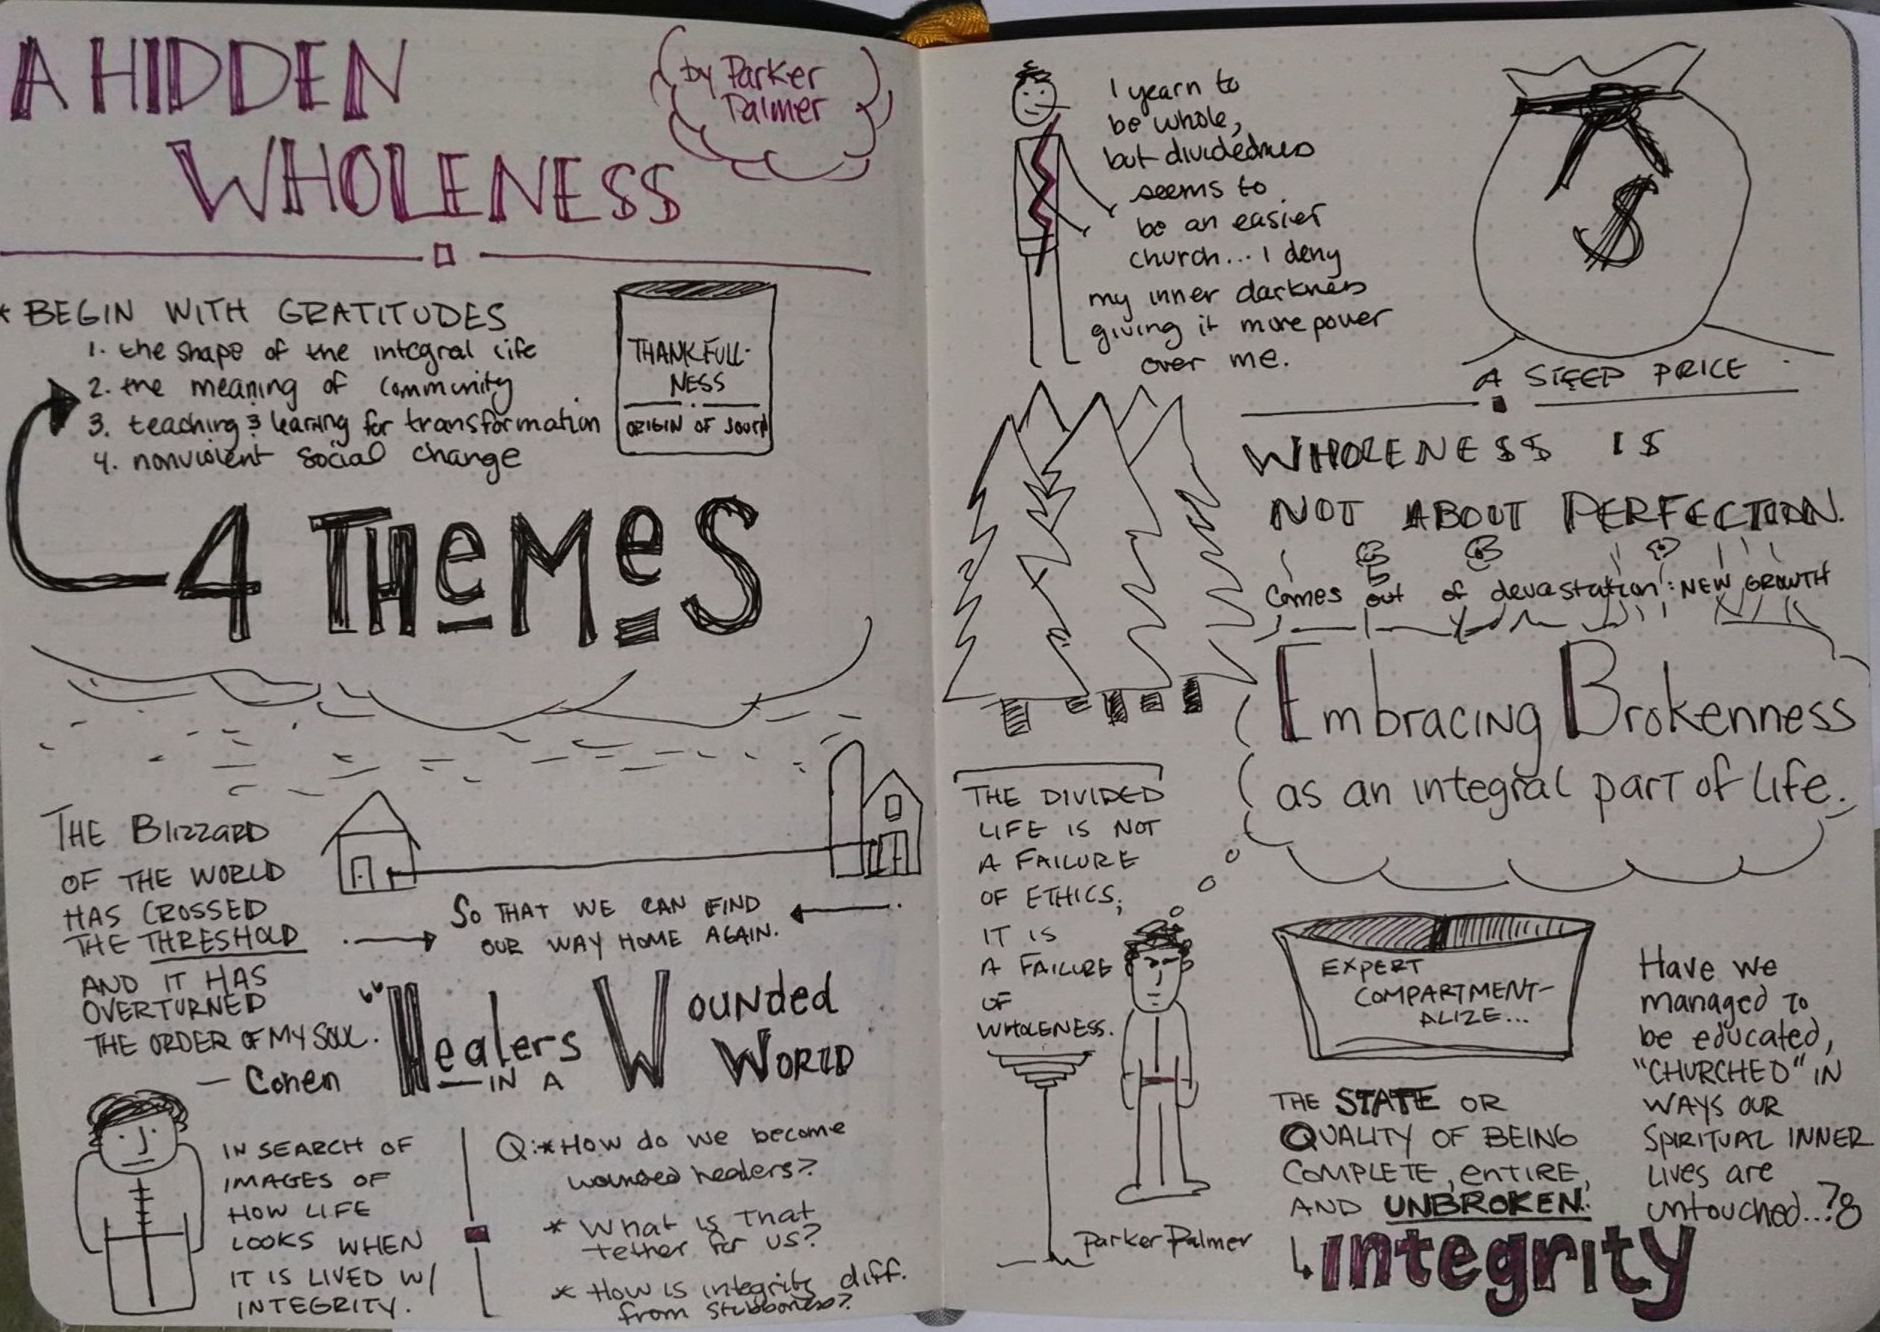 A HIDDEN
WHOLENESS
by Parker
Palmer
* BEGIN WITH GRATITUDES
1. the shape of the integral life
2. the meaning of community
3. teaching & learning for transformation
4. nonviolent social change
THANKFULL-
NESS
ORIGIN OF
4 THEMES
THE BLIZZARD
OF THE WORLD
HAS CROSSED
THE THRESHOLD
AND IT HAS
OVERTURNED
THE ORDER OF MY SOUL.
— Cohen
SO THAT WE CAN FIND
OUR WAY HOME AGAIN.
"Healers
IN A
Wounded
World
IN SEARCH OF
IMAGES OF
HOW LIFE
LOOKS WHEN
IT IS LIVED W/
INTEGRITY.
Q: * How do we become
wounded healers?
* What is That
tether for us?
* How is integrity diff.
from stubborness?
I yearn to
be whole,
but dividedness
seems to
be an easier
church... I deny
my inner darkness
giving it more power
over me.
$
A STEEP PRICE
WHOLENESS IS
NOT ABOUT PERFECTION.
Comes out of devastation: NEW GROWTH
Embracing Brokenness
as an integral part of life.
THE DIVIDED
LIFE IS NOT
A FAILURE
OF ETHICS;
IT IS
A FAILURE
OF
WHOLENESS.
Parker Palmer
EXPERT
COMPARTMENT-
ALIZE...
THE STATE OR
QUALITY OF BEING
COMPLETE, ENTIRE,
AND UNBROKEN.
integrity
Have we
managed to
be educated,
"CHURCHED" IN
WAYS OUR
SPIRITUAL INNER
Lives are
untouched...?